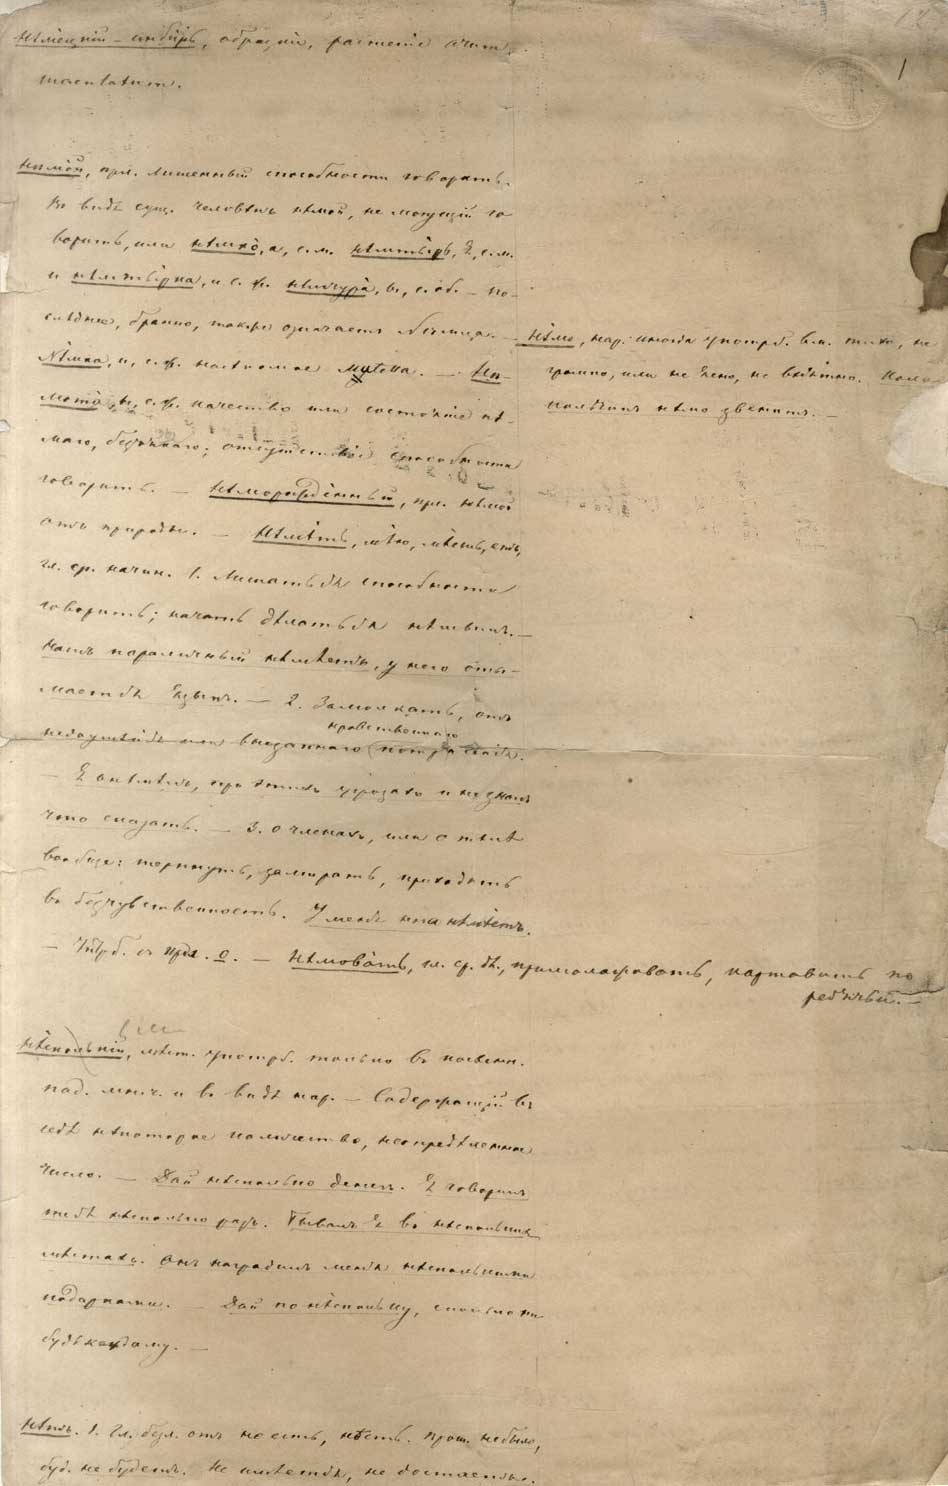 Нѣмецкій-инбирь, образки, растеніе Arum
maculatum.
Нѣмой, прл. Лишенный способности говорить.
Въ видѣ сущ. человѣкъ нѣмой, не могущій го
ворить, или нѣмко, а, с. м. нѣмтырь, я, с. м.
и нѣмтырка, и с. ж. нѣмчура, ы, с. об. — по-
слѣднее, бранно, также означаетъ Нѣмца. —
Нѣмка, и, с. ж. насѣкомое Mutella. — Нѣ-
мота, ы, с. ж. качество или состояніе нѣ-
маго, безъязыкаго; отсутствіе способности
говорить. — Нѣморожденный, прл. нѣмой
отъ природы. — Нѣмѣть, мѣю, мѣешь, онѣ,
гл. ср. начин. 1. Лишаться способности
говорить; начать дѣлаться нѣмымъ. —
нашъ параличный нѣмѣетъ, у него оты-
мается языкъ. — 2. Замолкать, отъ
нравственнаго
недоумѣнія или внезапнаго
— Я онѣмѣлъ, при этихъ угрозахъ и не зналъ
что сказать. — 3. о членахъ, или о тѣлѣ
вообще: терпнуть, замирать, приходить
въ безчувственность. У меня нога нѣмѣетъ.
— Утрб. съ прдл. о. — Нѣмовать, гл. ср. дѣ., картавить по
ребячьи. —
Нѣмо, нар. иногда употрб. вм. тихо, не
громко, или не ясно, не внятно.
колѣчикъ нѣмо звенитъ. —
Нѣсколькій, мѣст. употрб. только въ косвенн.
пад. мн. ч. и въ видѣ нар. — Содержащій въ
себѣ нѣкоторое количество, неопредѣленное
число. — Дай нѣсколько денегъ. Я говорилъ
тебѣ нѣсколько разъ. Бывалъ я въ нѣсколькихъ
мѣстахъ. Онъ наградилъ меня нѣсколькими
подарками. — Дай по нѣскольку, сколько ни
будь каждому. —
Нѣтъ. 1. Гл. безл. отъ не есть, нѣсть. прош. не было,
буд. не будетъ. Не имѣется, не достаетъ.